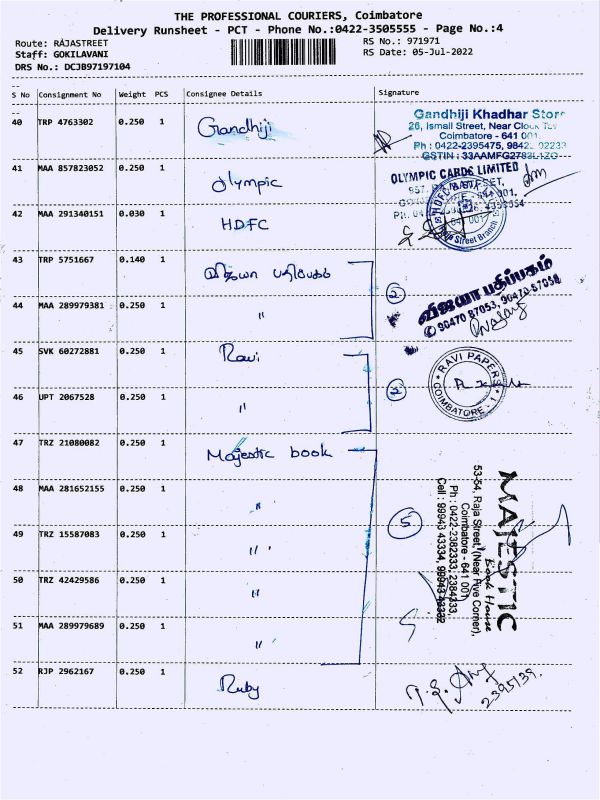 THE PROFESSIONAL COURIERS, Coimbatore
Delivery Runsheet - PCT - Phone No.:0422-3505555 - Page No.:4
Route: RAJASTREET
RS No.: 971971
Staff: GOKILAVANI
RS Date: 05-Jul-2022
DRS No.: DCJB97197104
S No Consignment No Weight PCS Consignee Details Signature
40 TRP 4763302 0.250 1 Gandhiji
Gandhiji Khadhar Store
26, Ismail Street, Near Clock
Coimbatore - 641 001
Ph : 0422-2395475, 9842 02233
GSTIN : 33AAMFG2783L1ZO
41 MAA 857823052 0.250 1 Olympic
OLYMPIC CARDS LIMITED
42 MAA 291340151 0.030 1 HDFC
HDFC BANK
Raja Street Branch
43 TRP 5751667 0.140 1 விஜயா பதிப்பகம்
2
விஜயா பதிப்பகம்
90470 87053, 90470 87058
44 MAA 289979381 0.250 1 "
45 SVK 60272881 0.250 1 Ravi
RAVI PAPERS
COIMBATORE - 1
46 UPT 2067528 0.250 1 "
2
47 TRZ 21080082 0.250 1 Majestic book
48 MAA 281652155 0.250 1 "
5
MAJESTIC
Book House
53-54, Raja Street, (Near Five Corner),
Coimbatore - 641 001
Ph : 0422-2382333, 2384333,
Cell : 99943 43334, 99943 43332
49 TRZ 15587083 0.250 1 "
50 TRZ 42429586 0.250 1 "
51 MAA 289979689 0.250 1 "
52 RJP 2962167 0.250 1 Ruby
2395139.